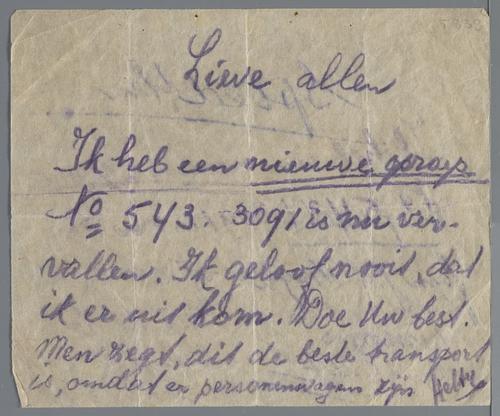 Lieve allen
Ik heb een nieuwe groep
No 543. 3091 is nu ver-
vallen. Ik geloof nooit, dat
ik er uit kom. Doe Uw best.
Men zegt, dit de beste transport
is, omdat er personenwagens zijn